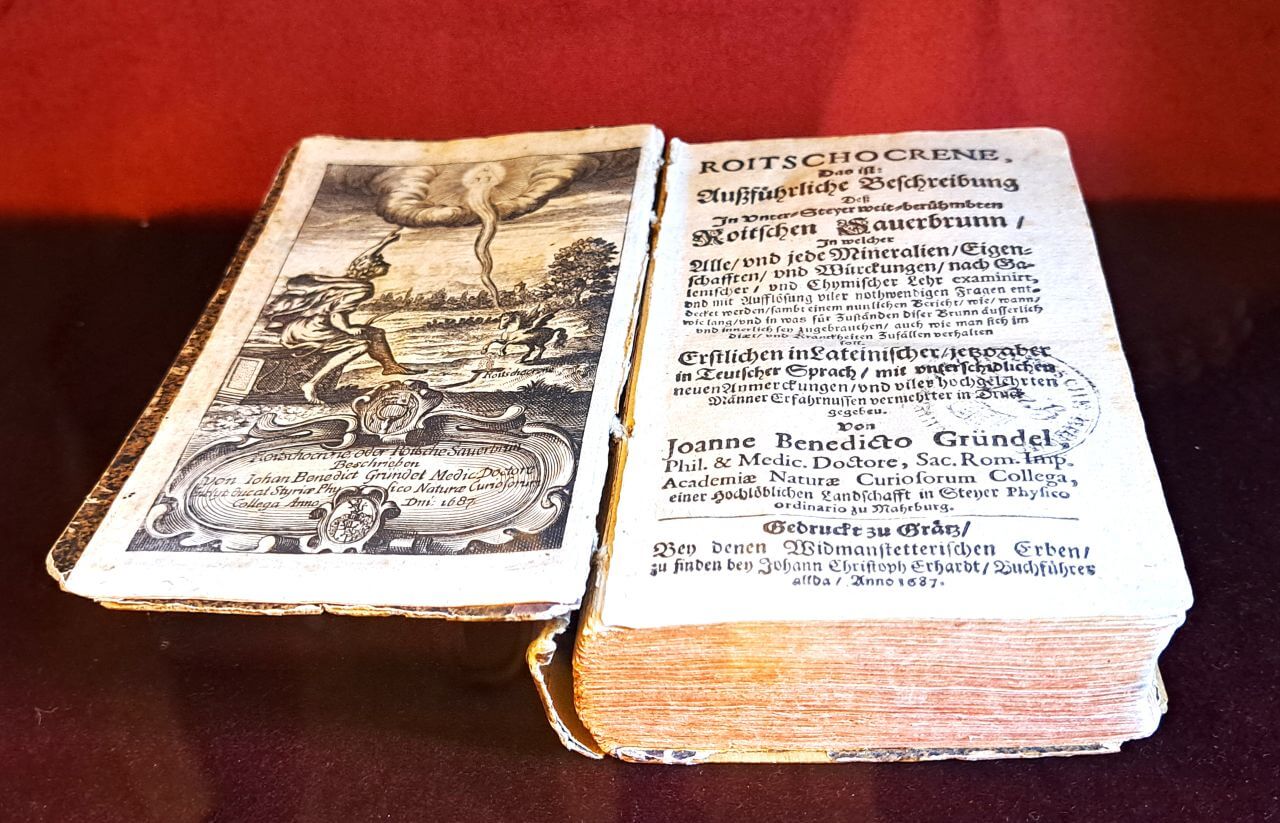 Roitschocrene
Roitschocrene oder Roitsche Sauerbrun
Beschrieben
von Iohan Benedict Gründel Medic. Doctore
Ducal Styriæ Phy sico Naturæ Curiosorum
Collega Anno Dni: 1687
ROITSCHOCRENE,
Das ist:
Außführliche Beschreibung
Deß
In Vnter-Steyer weit-berühmbten
Roitschen Sauerbrunn /
In welcher
Alle/ vnd jede Mineralien/ Eigen-
schafften/ vnd Würckungen/ nach Ga-
lenischer/ vnd Chymischer Lehr examinirt,
vnd mit Aufflösung viler nothwendigen Fragen ent-
decket werden/ sambt einem nutzlichen Bericht/ wie/ wann/
wie lang/ vnd in was für Zuständen diser Brunn äusserlich
vnd innerlich sey zugebrauchen/ auch wie man sich im
Diæt/ vnd Kranckheiten Zufällen verhalten
soll.
Erstlichen in Lateinischer/ jetzo aber
in Teutscher Sprach/ mit vnterschidlichen
neuen Anmerckungen/ vnd viler hochgelehrten
Männer Erfahrnussen vermehrter in Druck
gegeben.
Von
Joanne Benedicto Gründel,
Phil. & Medic. Doctore, Sac. Rom. Imp.
Academiæ Naturæ Curiosorum Collega,
einer Hochlöblichen Landschafft in Steyer Physico
ordinario zu Mahrburg.
Gedruckt zu Grätz/
Bey denen Widmanstetterischen Erben/
zu finden bey Johann Christoph Erhardt/ Buchführer
allda/ Anno 1687.